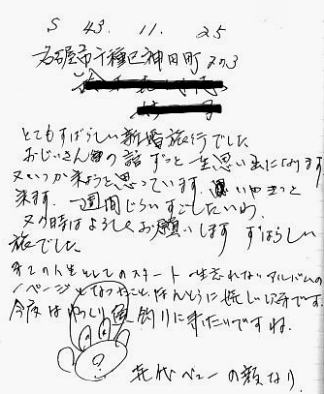 S 43. 11. 25
名古屋市千種区神田町 203
とてもすばらしい新婚旅行でした
おじいさんの話 ずっと一生思い出になります
又いつか来ようと思っています いやきっと
来ます 一週間ぐらいすごしたいわ
又の時はよろしくお願いします すばらしい
旅でした
人生としてのスタート 一生忘れないアルバムの
1ページとなったこと ほんとうに嬉しい
今度は 魚釣りに来たいですね
?
ベエーの顔なり